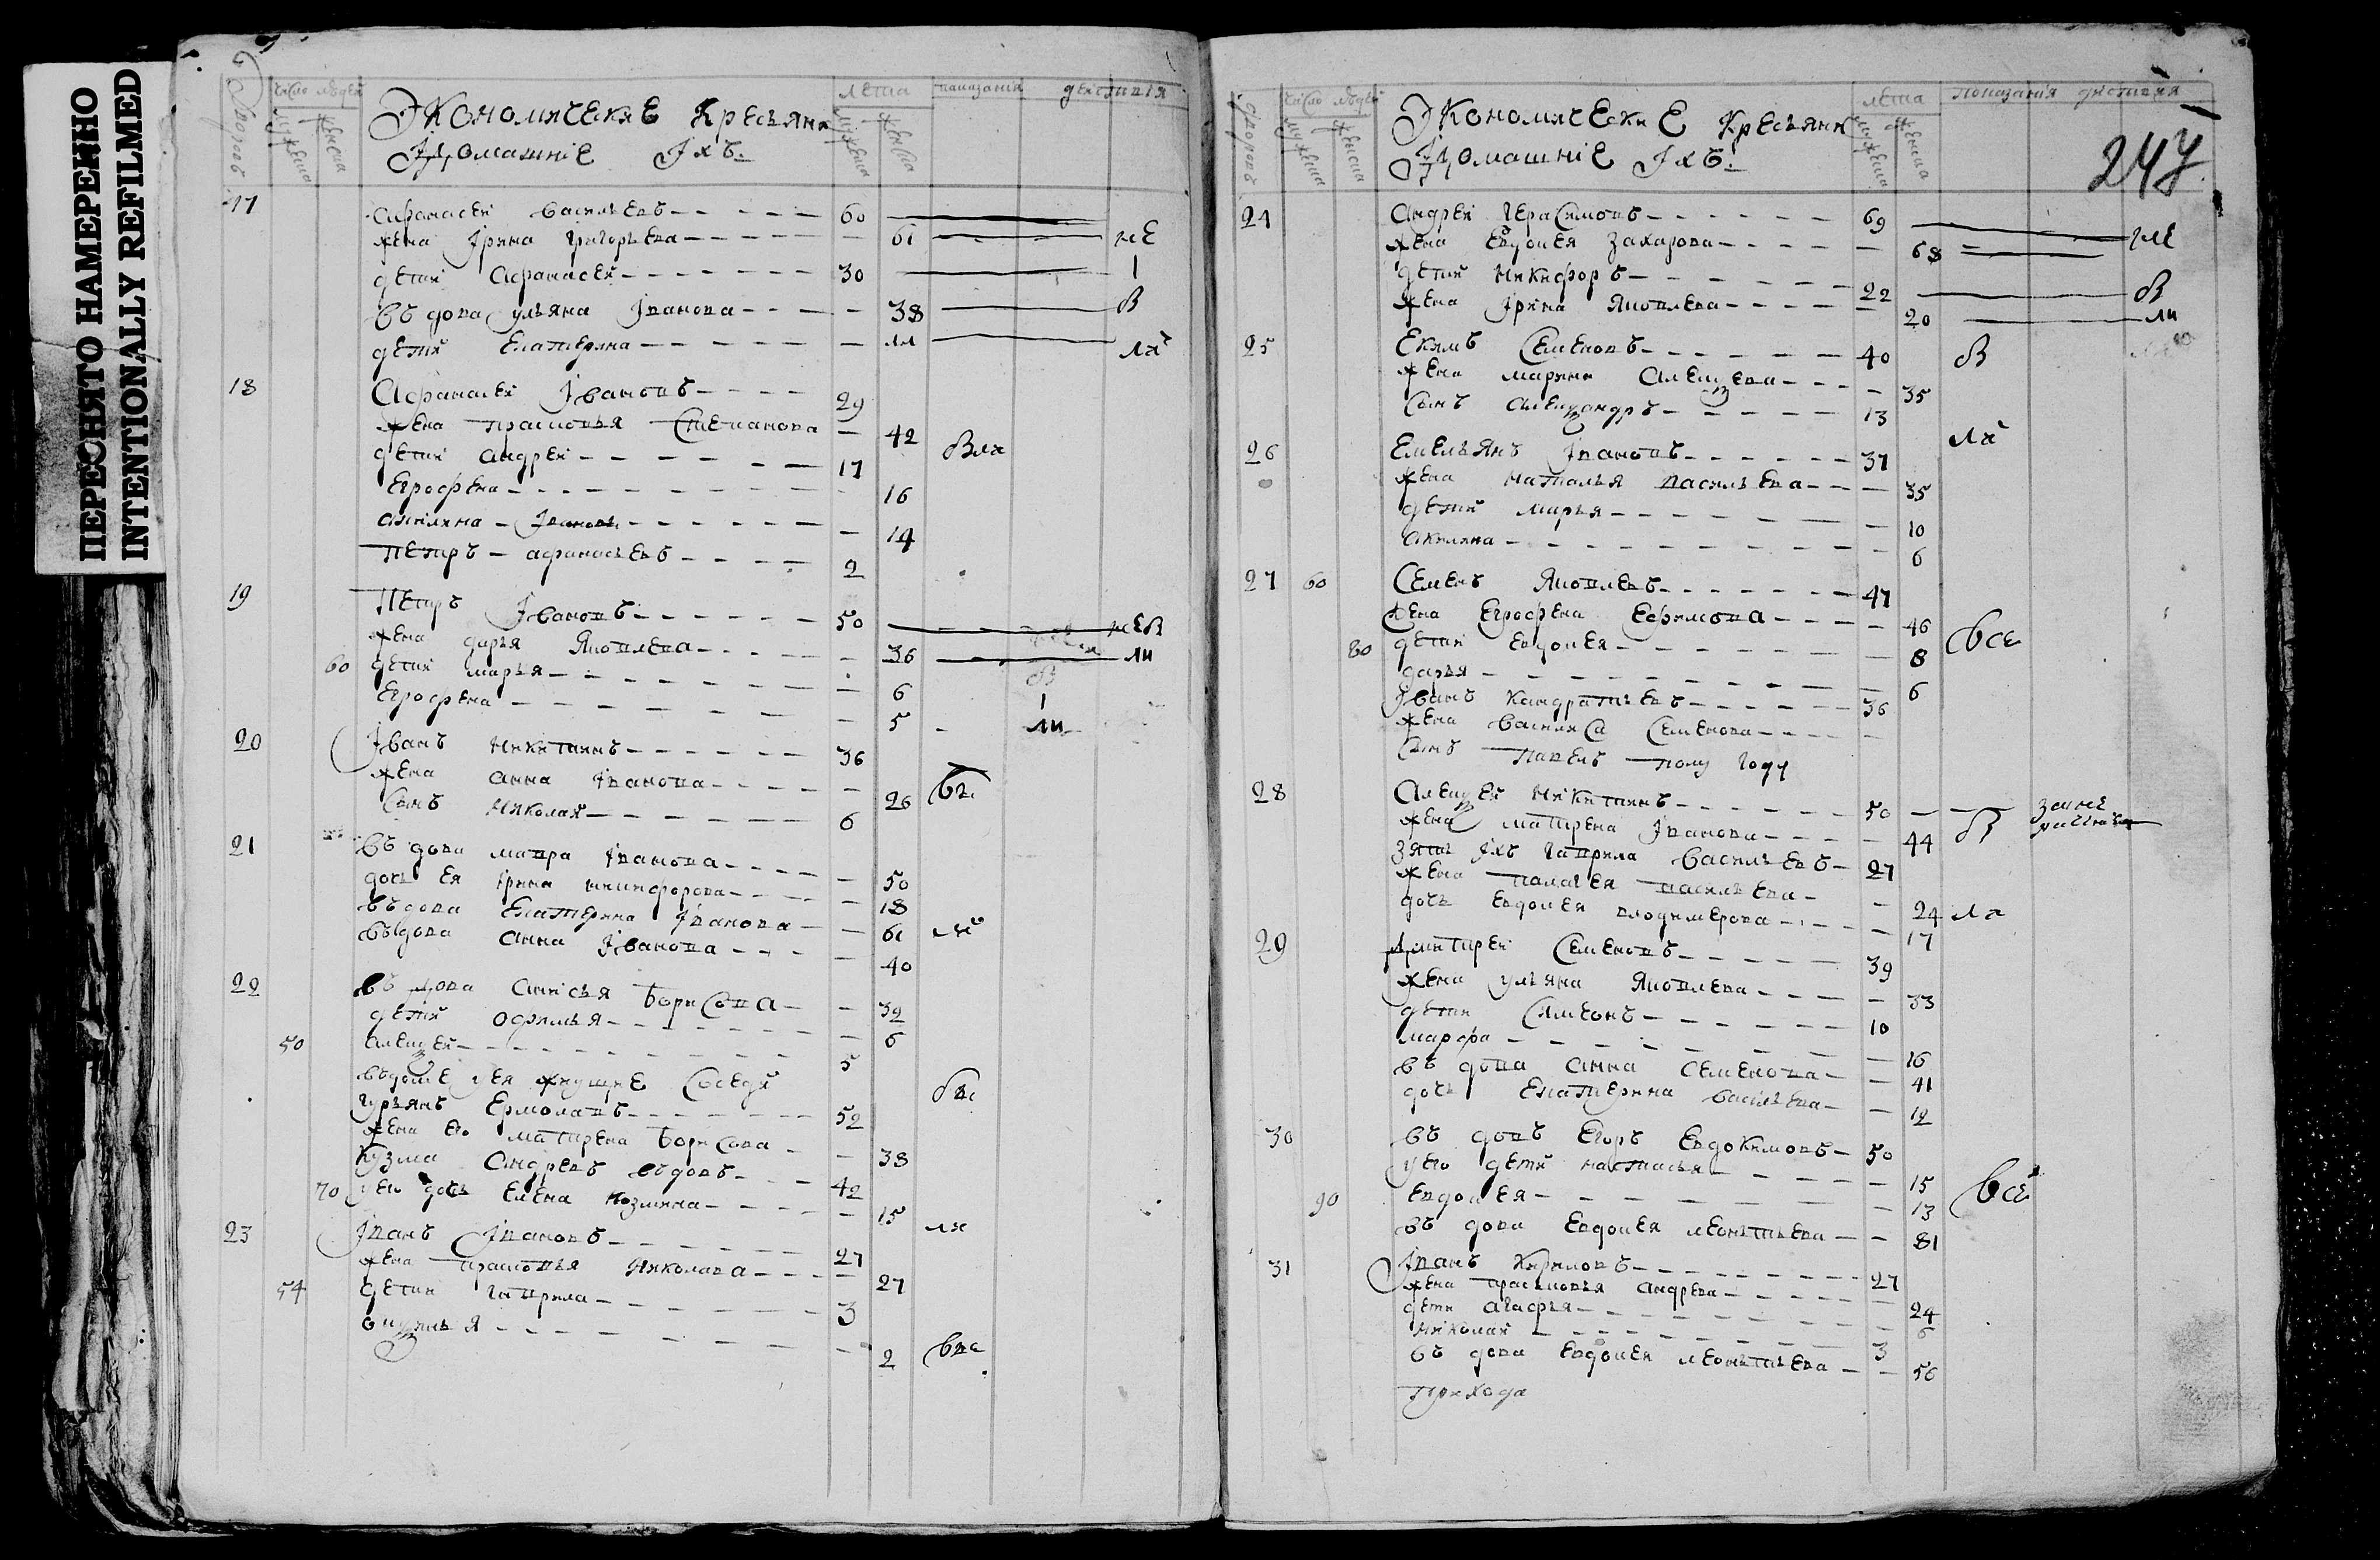 ПЕРЕСНЯТО НАМЕРЕННО
INTENTIONALLY REFILMED
дворовъ число людей мужеска женска
Экономические Кресьяня
Idомашніе Iхъ.
лета мужеска женска
показания действия
17 Афонасей Васильевъ 60
жена Iрина Григорьева 61 не
дети Афонасей 30
въдова ульяна Iванова 38 в
дети Екатерина
18 Афонасей Iвановъ 29
жена прасковья Степанова 42
дети андрей 17
Егрофена 16
акилина Iванова 14
Петръ афонасьевъ 2
19 Петръ Iвановъ 50
жена дарья Яковлева 36 ли
60 дети марья 6
Егрофена 5 ли
20 Iванъ Никитинъ 36
жена анна Iванова 26
сынъ Николай 6
21 въдова мавра Iванова 50
дочь Ея Iрина никифорова 18
въдова Екатерина Iванова 61
въдова анна Iванова 40
22 въдова анисья Борисова 32
дети офимья 6
50 алексей 5
въдоме уея живущие соседи
гурьянъ Ермолавъ 52
жена Его матрена Борисова 38
Кузма андревъ въдовъ 42
70 уего дочь Елена козмина 15
23 Iванъ Iвановъ 27
жена прасковья Николава 27
54 дети гаврила 3
2
дворовъ число людей мужеска женска
Экономически Е Кресьяня
Idомашніе Iхъ.
лета мужеска женска
показания действия
247
24 Андрей герасимовъ 69
жена Евдокея захарова 68
дети никифоръ 22 в
жена Iрина Яковлева 20 ли
25 Екимъ Семеновъ 40 в
жена марина алексеева 35
сынъ александръ 13
26 Емельянъ Iвановъ 37
жена наталья васильева 35
дети марья 10
акилина 6
27 60 Семенъ Яковлевъ 47
жена Егрофена Ефимова 46 все
80 дети Евдокея 8
дарья 6
Iванъ кандратьевъ 36
жена василиса семенова
сынъ павелъ полу году
28 Алексей никитинъ 50
жена матрена Iванова 44 в
зять Iхъ гаврила васильевъ 27
жена палагея васильева 24
дочь Евдокея володимерова 17
29 Дмитрей семеновъ 39
жена ульяна Яковлева 33
дети Симеонъ 10
марфа 16
въдова анна семенова 41
дочь Екатерина васильева 12
30 въ довъ Егоръ Евдокимовъ 50
уего дети настасья 15
90 Евдокея 13 все
въ дова Евдокея леонтьева 81
31 Iванъ Кириловъ 27
жена прасковья андрева 24
дети агафья 6
николай 3
въ дова Евдокея леонтьева 56
прихода